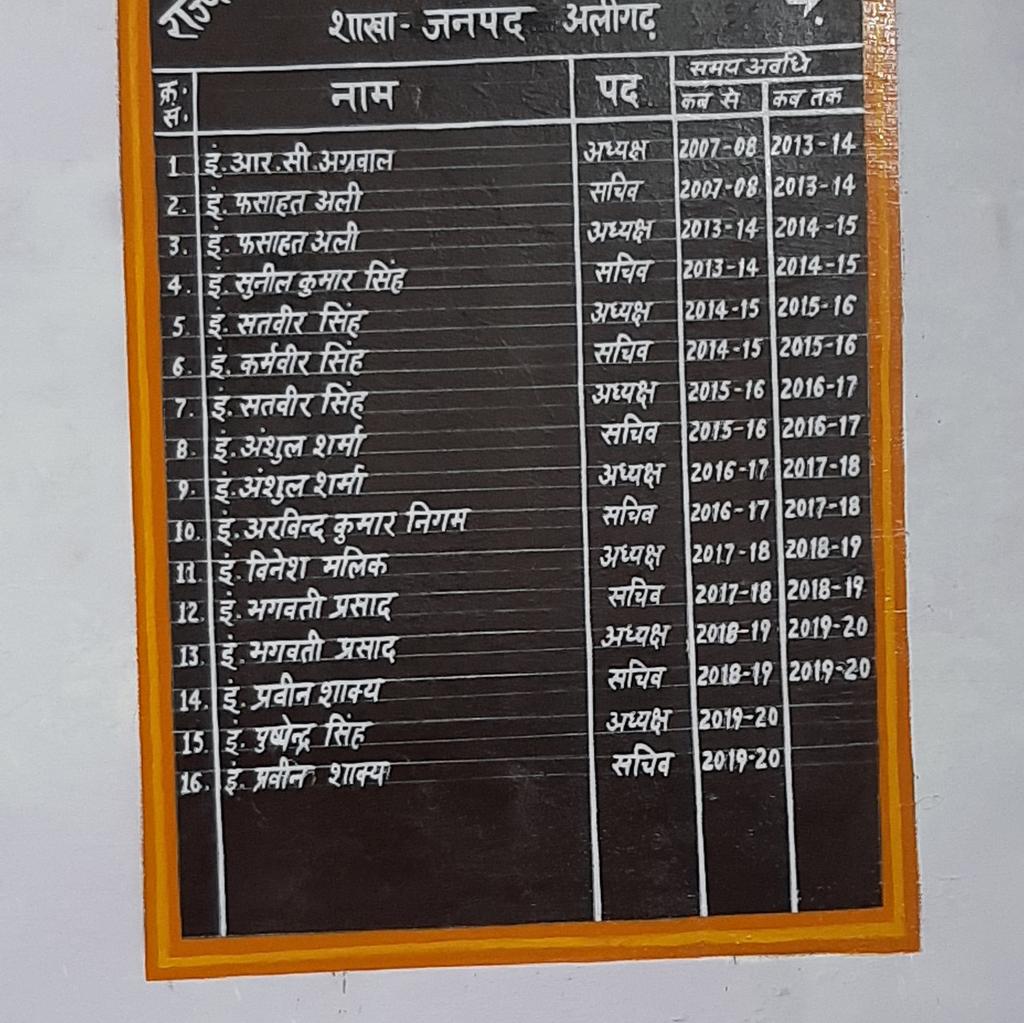 शाखा - जनपद अलीगढ़
क्र. सं. नाम पद समय अवधि
कब से कब तक
1. इं. आर. सी. अग्रवाल अध्यक्ष 2007-08 2013-14
2. इं. फसाहत अली सचिव 2007-08 2013-14
3. इं. फसाहत अली अध्यक्ष 2013-14 2014-15
4. इं. सुनील कुमार सिंह सचिव 2013-14 2014-15
5. इं. सतवीर सिंह अध्यक्ष 2014-15 2015-16
6. इं. कर्मवीर सिंह सचिव 2014-15 2015-16
7. इं. सतवीर सिंह अध्यक्ष 2015-16 2016-17
8. इं. अंशुल शर्मा सचिव 2015-16 2016-17
9. इं. अंशुल शर्मा अध्यक्ष 2016-17 2017-18
10. इं. अरविन्द कुमार निगम सचिव 2016-17 2017-18
11. इं. विनेश मलिक अध्यक्ष 2017-18 2018-19
12. इं. भगवती प्रसाद सचिव 2017-18 2018-19
13. इं. भगवती प्रसाद अध्यक्ष 2018-19 2019-20
14. इं. प्रवीन शाक्य सचिव 2018-19 2019-20
15. इं. पुष्पेन्द्र सिंह अध्यक्ष 2019-20
16. इं. प्रवीन शाक्य सचिव 2019-20